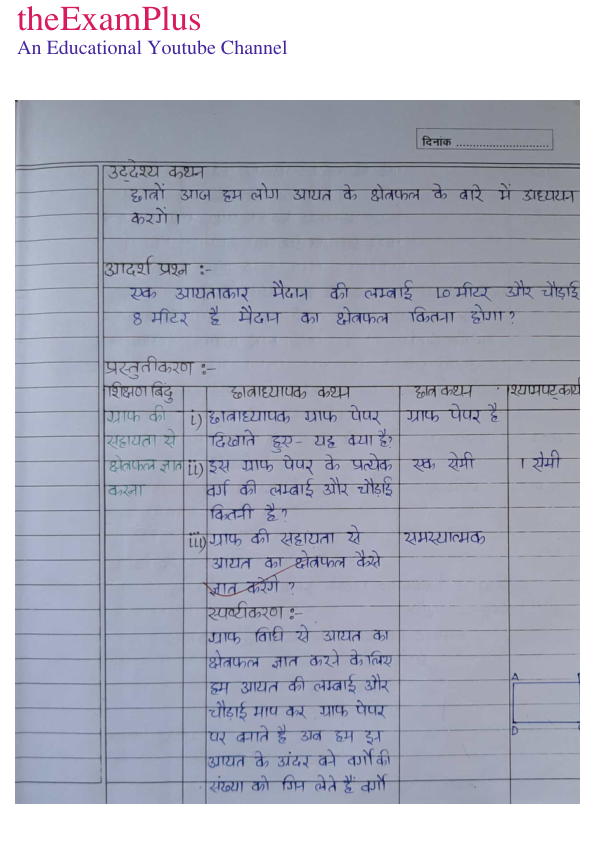 theExamPlus
An Educational Youtube Channel
दिनांक ............................
उद्देश्य कथन
छात्रों आज हम लोग आयत के क्षेत्रफल के बारे में अध्ययन
करेगें ।
आदर्श प्रश्न :-
एक आयताकार मैदान की लम्बाई 10 मीटर और चौड़ाई
8 मीटर है मैदान का क्षेत्रफल कितना होगा ?
प्रस्तुतीकरण :-
शिक्षण बिंदु छात्राध्यापक कथन छात्र कथन श्यामपट्कार्य
ग्राफ की i) छात्राध्यापक ग्राफ पेपर ग्राफ पेपर है
सहायता से दिखाते हुए - यह क्या है?
क्षेत्रफल ज्ञात ii) इस ग्राफ पेपर के प्रत्येक एक सेमी 1 सेमी
करना वर्ग की लम्बाई और चौड़ाई
कितनी है ?
iii) ग्राफ की सहायता से समस्यात्मक
आयत का क्षेत्रफल कैसे
ज्ञात करेंगे ?
स्पष्टीकरण :-
ग्राफ विधि से आयत का
क्षेत्रफल ज्ञात करने के लिए
हम आयत की लम्बाई और
चौड़ाई माप कर ग्राफ पेपर
पर बनाते है अब हम इस
आयत के अंदर बने वर्गों की
संख्या को गिन लेते हैं वर्गों
A
D